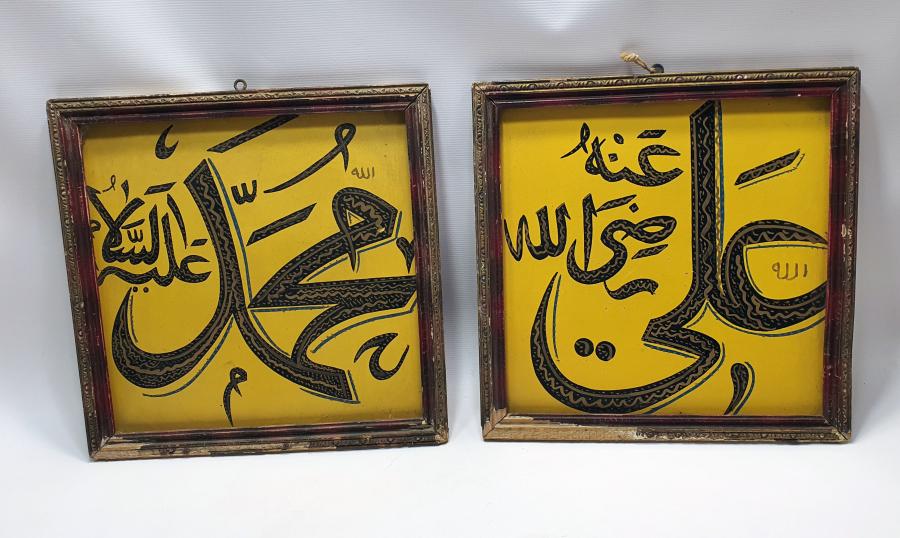 الله
محمد
عليه السلام
الله
علي
رضي الله
عنه